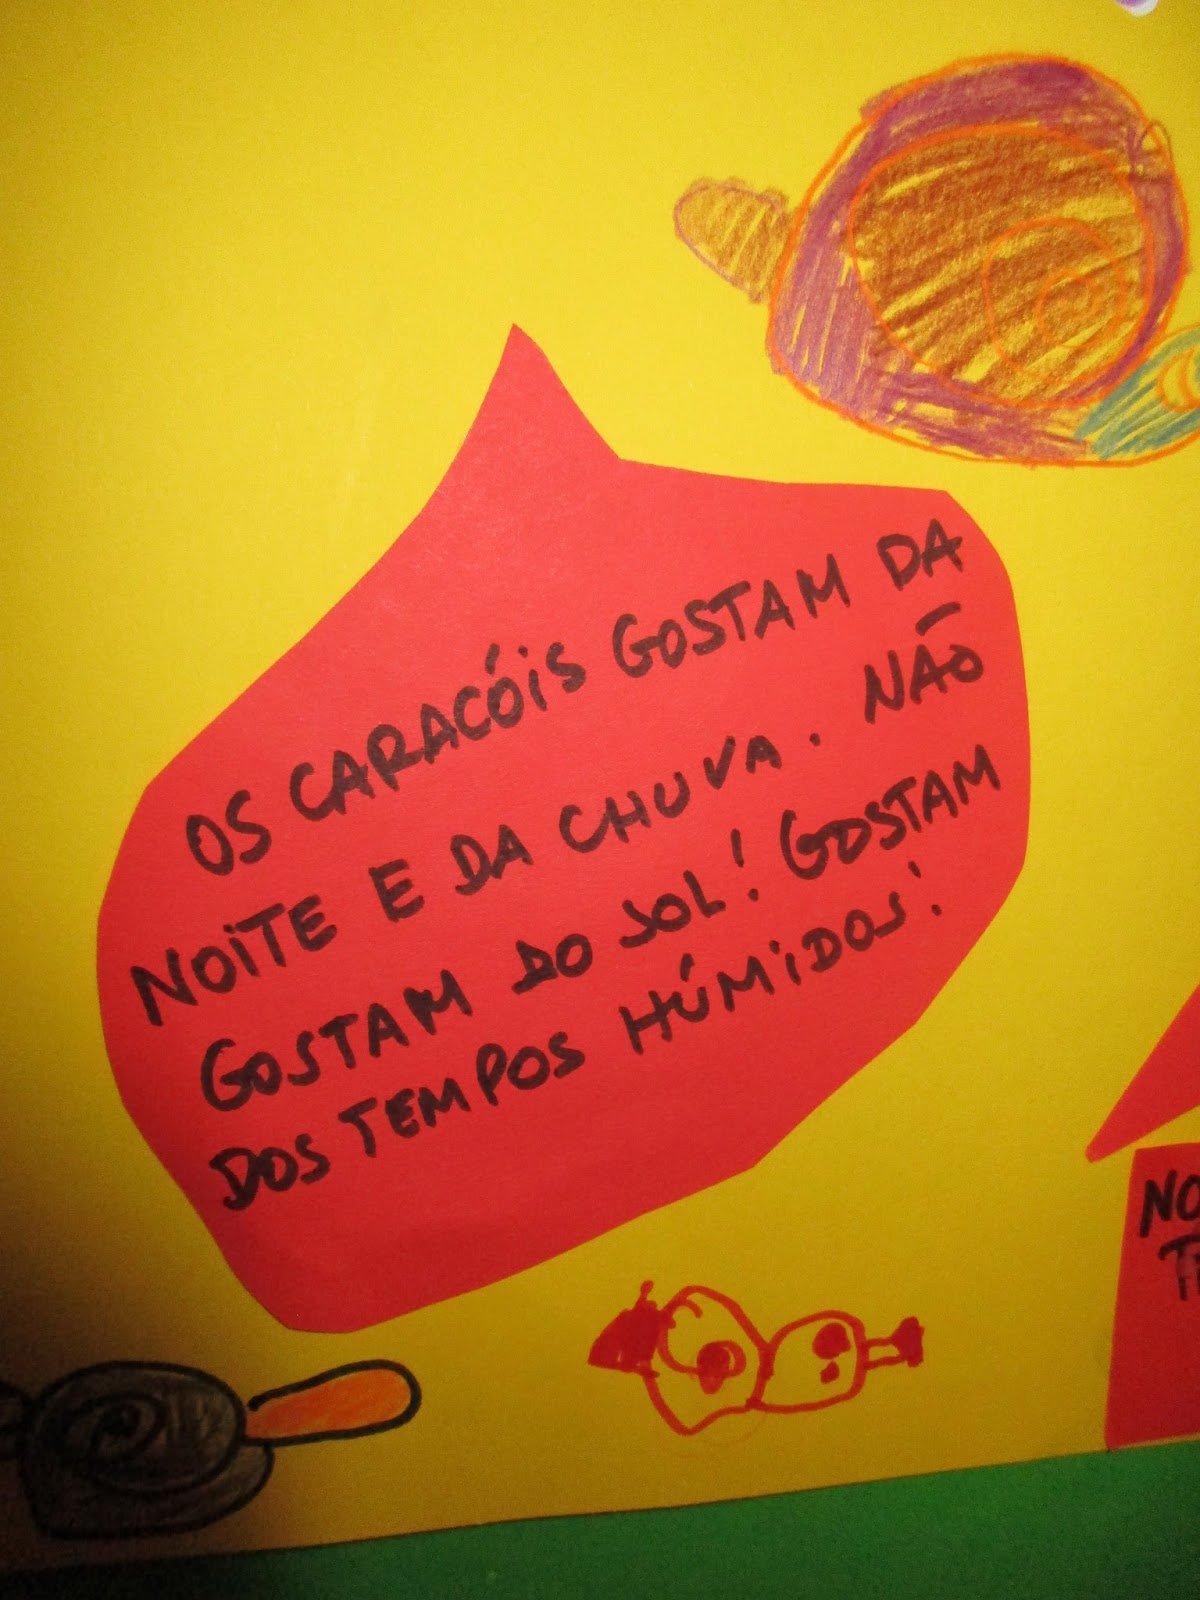 OS CARACÓIS GOSTAM DA
NOITE E DA CHUVA. NÃO
GOSTAM DO SOL! GOSTAM
DOS TEMPOS HÚMIDOS!
NO